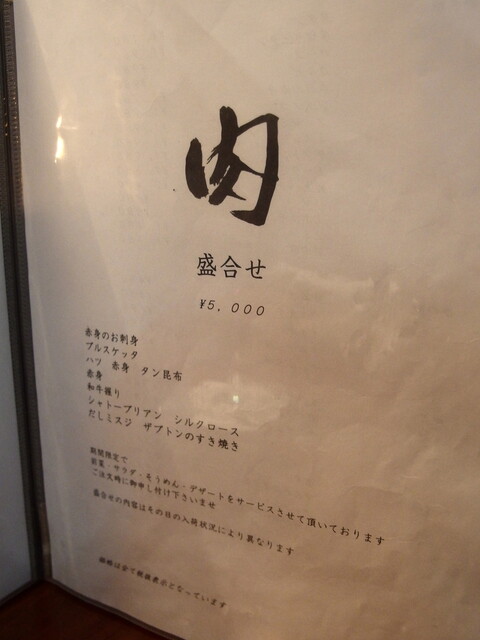 肉
盛合せ
¥5,000
赤身のお刺身
ブルスケッタ
ハツ 赤身 タン昆布
赤身
和牛握り
シャトーブリアン シルクロース
だしミスジ ザブトンのすき焼き
期間限定で
前菜・サラダ・そうめん・デザートをサービスさせて頂いております
ご注文時に御申し付け下さいませ
盛合せの内容はその日の入荷状況により異なります
価格は全て税抜表示となっています